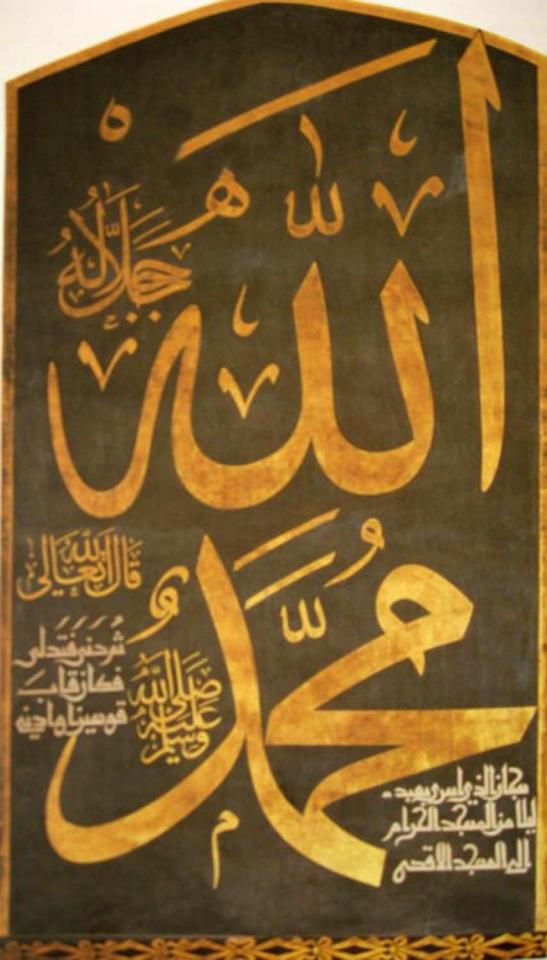 الله
جل جلاله
محمد
صلى الله عليه وسلم
قال الله تعالى
ثم دنى فتدلى
فكان قاب
قوسين او ادنى
سبحان الذي اسرى بعبده
ليلا من المسجد الحرام
الى المسجد الاقصى